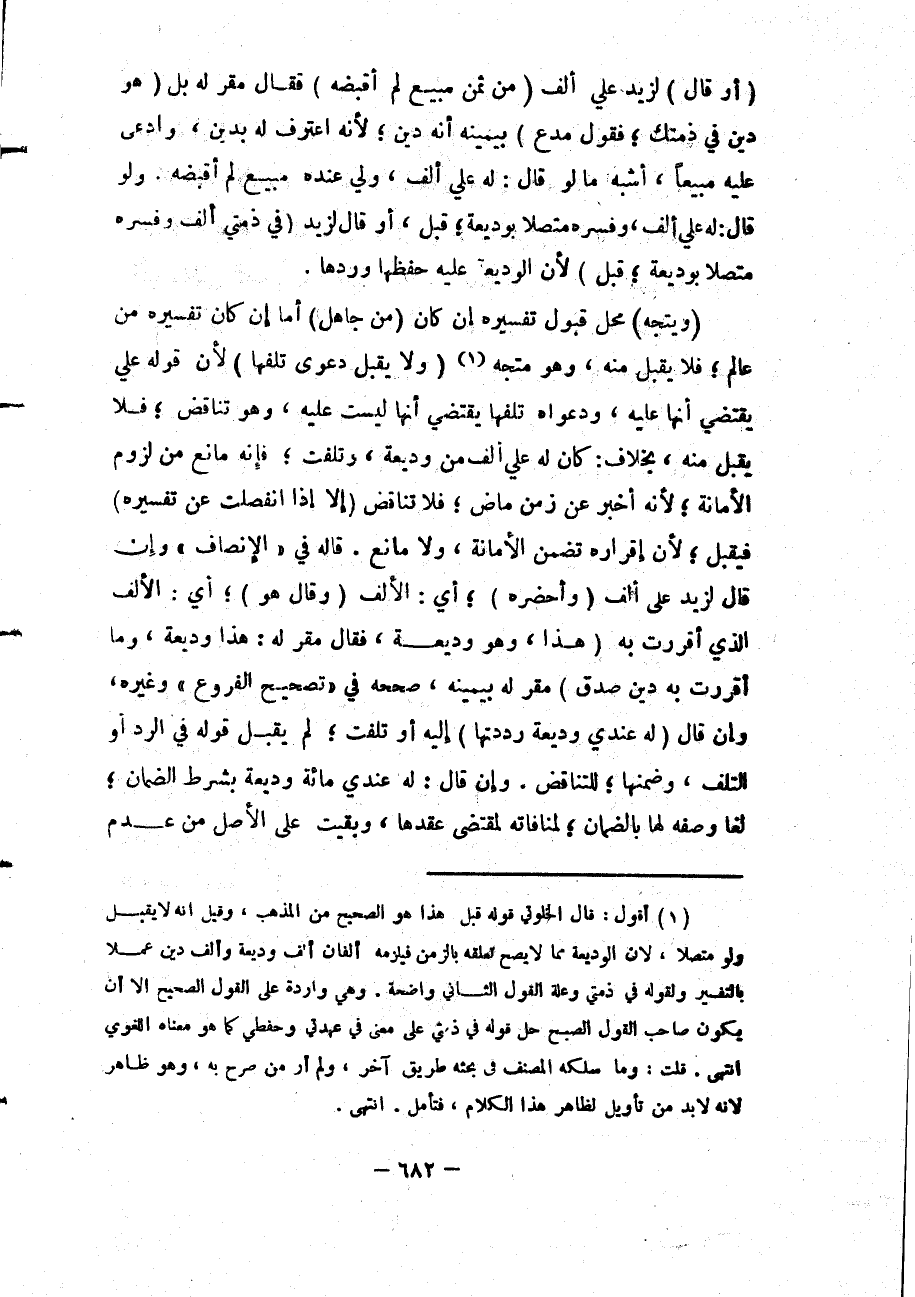 ( أو قال ) لزيد علي ألف ( من ثمن مبيع لم أقبضه ) فقال مقر له بل ( هو
دين في ذمتك ؛ فقول مدع ) بيمينه أنه دين ؛ لأنه اعترف له بدين ، وادعى
عليه مبيعاً ، أشبه ما لو قال : له علي ألف ، ولي عنده مبيع لم أقبضه . ولو
قال: له علي ألف، وفسره متصلا بوديعة؛ قبل ، أو قال لزيد (في ذمتي ألف وفسره
متصلا بوديعة ؛ قبل ) لأن الوديعة عليه حفظها وردها .
(ويتجه) محل قبول تفسيره ان كان (من جاهل) أما إن كان تفسيره من
عالم ؛ فلا يقبل منه ، وهو متجه (١) ( ولا يقبل دعوى تلفها ) لأن قوله علي
يقتضي أنها عليه ، ودعواه تلفها يقتضي أنها ليست عليه ، وهو تناقض ؛ فلا
يقبل منه ، بخلاف: كان له علي ألف من وديعة ، وتلفت ؛ فإنه مانع من لزوم
الأمانة ؛ لأنه أخبر عن زمن ماض ؛ فلا تناقض (إلا إذا انفصلت عن تفسيره)
فيقبل ؛ لأن إقراره تضمن الأمانة ، ولا مانع . قاله في « الإنصاف » وإن
قال لزيد علي ألف ( وأحضره ) ؛ أي : الألف ( وقال هو ) ؛ أي : الألف
الذي أقررت به ( هذا ، وهو وديعة ، فقال مقر له : هذا وديعة ، وما
أقررت به دين صدق ) مقر له بيمينه ، صححه في «تصحيح الفروع» وغيره،
وان قال ( له عندي وديعة رددتها ) إليه أو تلفت ؛ لم يقبل قوله في الرد أو
التلف ، وضمنها ؛ للتناقض . وإن قال : له عندي مائة وديعة بشرط الضمان ؛
لغا وصفه لها بالضمان ؛ لمنافاته لمقتضى عقدها ، وبقيت على الأصل من عدم
(١) أقول : قال الخلوتي قوله قبل هذا هو الصحيح من المذهب ، وقيل انه لا يقبل
ولو متصلا ، لان الوديعة مما لا يصح تعلقه بالزمن فيلزمه ألفان ألف وديعة وألف دين عملا
بالتفسير ولقوله في ذمتي وعلة القول الثاني واضحة . وهي واردة على القول الصحيح الا أن
يكون صاحب القول الصحيح حمل قوله في ذمتي على معنى في عهدتي وحفظي كما هو معناه اللغوي
انتهى . قلت : وما سلكه المصنف في بحثه طريق آخر ، ولم أر من صرح به ، وهو ظاهر
لانه لابد من تأويل لظاهر هذا الكلام ، فتأمل . انتهى .
— ٦٨٢ —